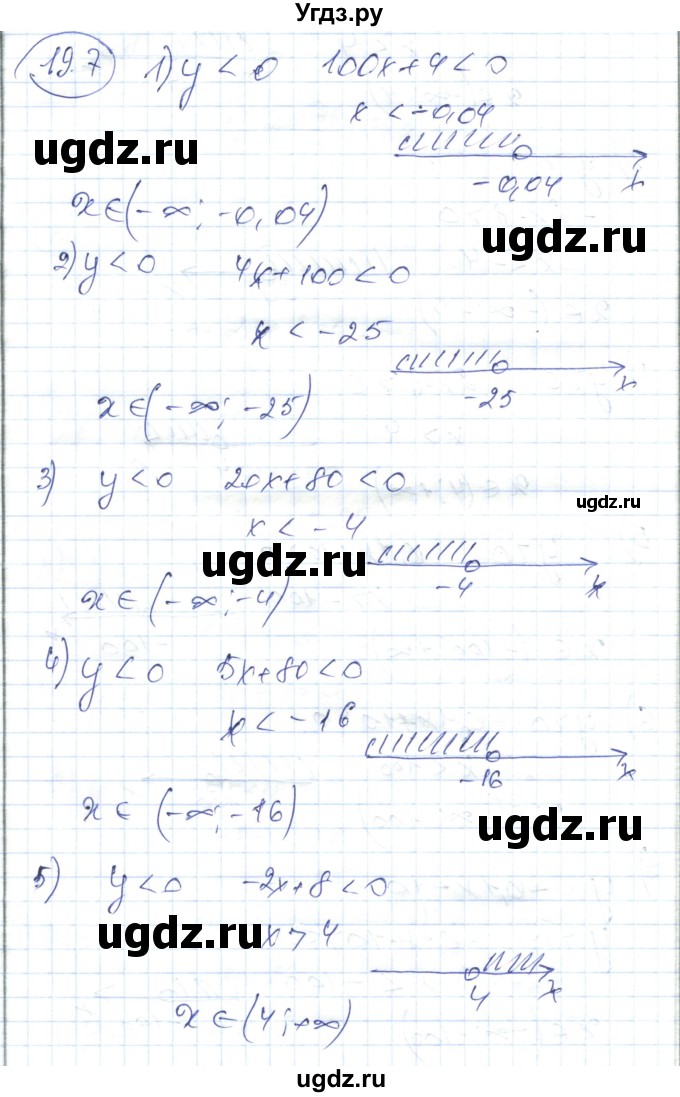 Угдз.ру
19.7 1) y < 0 100x+4<0
x < -0,04
ugdz.ru
-0,04 x
x∈(-∞; -0,04)
ugdz.ru
2) y<0 4x+100<0
x < -25
-25 x
x∈(-∞; -25)
3) y<0 20x+80<0
ugdz.ru
x < -4
ugdz.ru
-4 x
x∈(-∞; -4)
4) y<0 5x+80<0
x < -16
-16 x
x∈(-∞; -16)
ugdz.ru
5) y<0 -2x+8<0
ugdz.ru
x > 4
4 x
x∈(4; +∞)
ugdz.ru